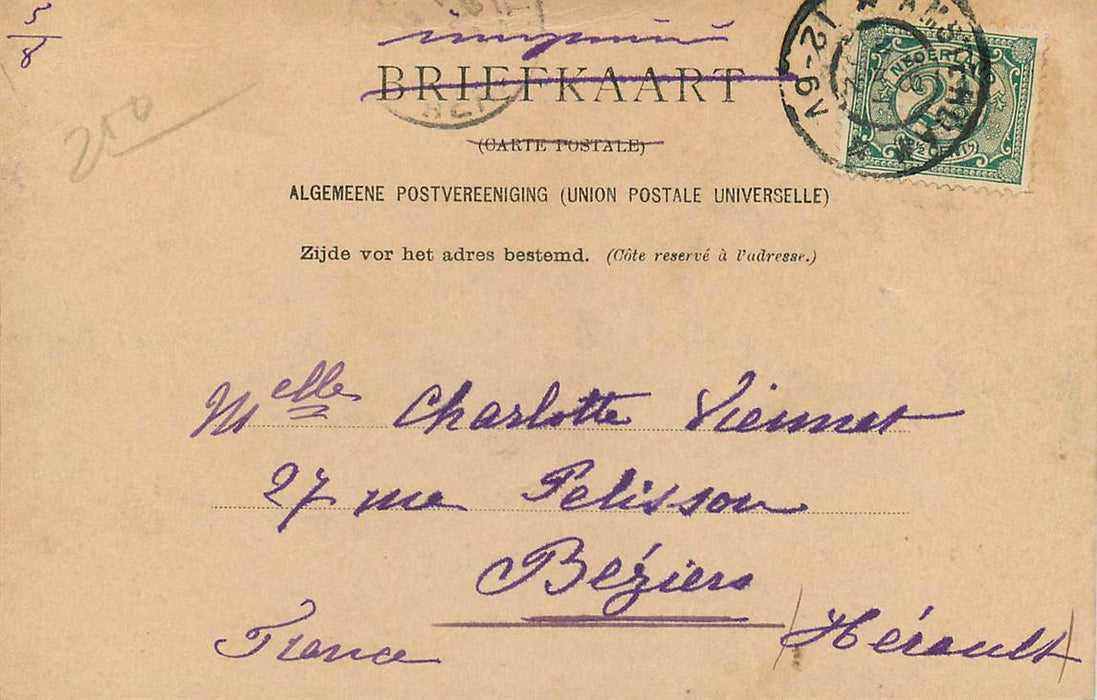 5/8
imprimé
BRIEFKAART
(CARTE POSTALE)
NEDERLAND
2½
CENT
12-9V
200
ALGEMEENE POSTVEREENIGING (UNION POSTALE UNIVERSELLE)
Zijde vor het adres bestemd. (Côte reservé à l'adresse.)
Melle Charlotte Viennet
27 rue Pelisson
Béziers
(Hérault)
France